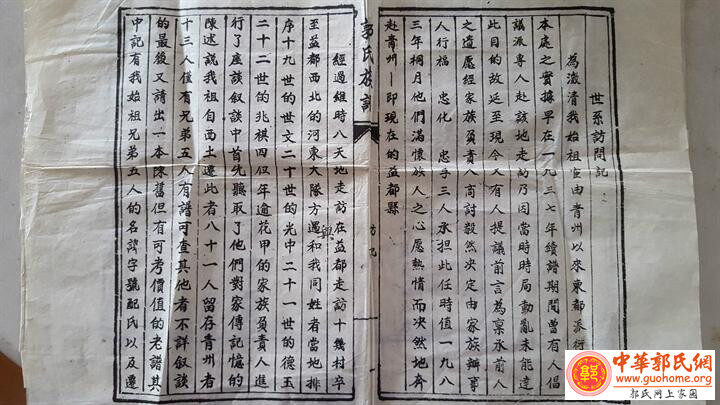 世系訪問記
為澂清我始祖宦由青州以來東都派衍
本處之實據早在一九三七年續譜期間曾有人倡
議派專人赴該地走訪乃因當時時局動亂未能達
此目的故延至現今又有人提議前言為稟承前人
之遺愿經家族負責人商討毅然決定由家族辦事
人行福 忠化 忠手三人承担此任時值一九八
三年桐月他們滿懷族人之心愿熱情而決然地奔
赴青州—即現在的益都縣
郭氏族譜
訪記
一
經過維時八天地走訪在益都走訪十幾村卒
至益都西北的河東大隊方遇和我同姓者當地排
序十九世的世文二十世的光中二十一世的德玉
二十二世的兆祺四位年逾花甲的家族負責人進
行了座談叙談中首先聽取了他們對家傳記憶的
興
陳述說我祖自西土遷此者八十一人留存青州者
十三人僅有兄弟五人有譜可查其他者不詳叙談
的最後又請出一本陳舊但有可考價值的老譜其
中記有我始祖兄弟五人的名諱字號配氏以及遷
中華郭氏網
http://www.guohome.org
郭氏网上家園